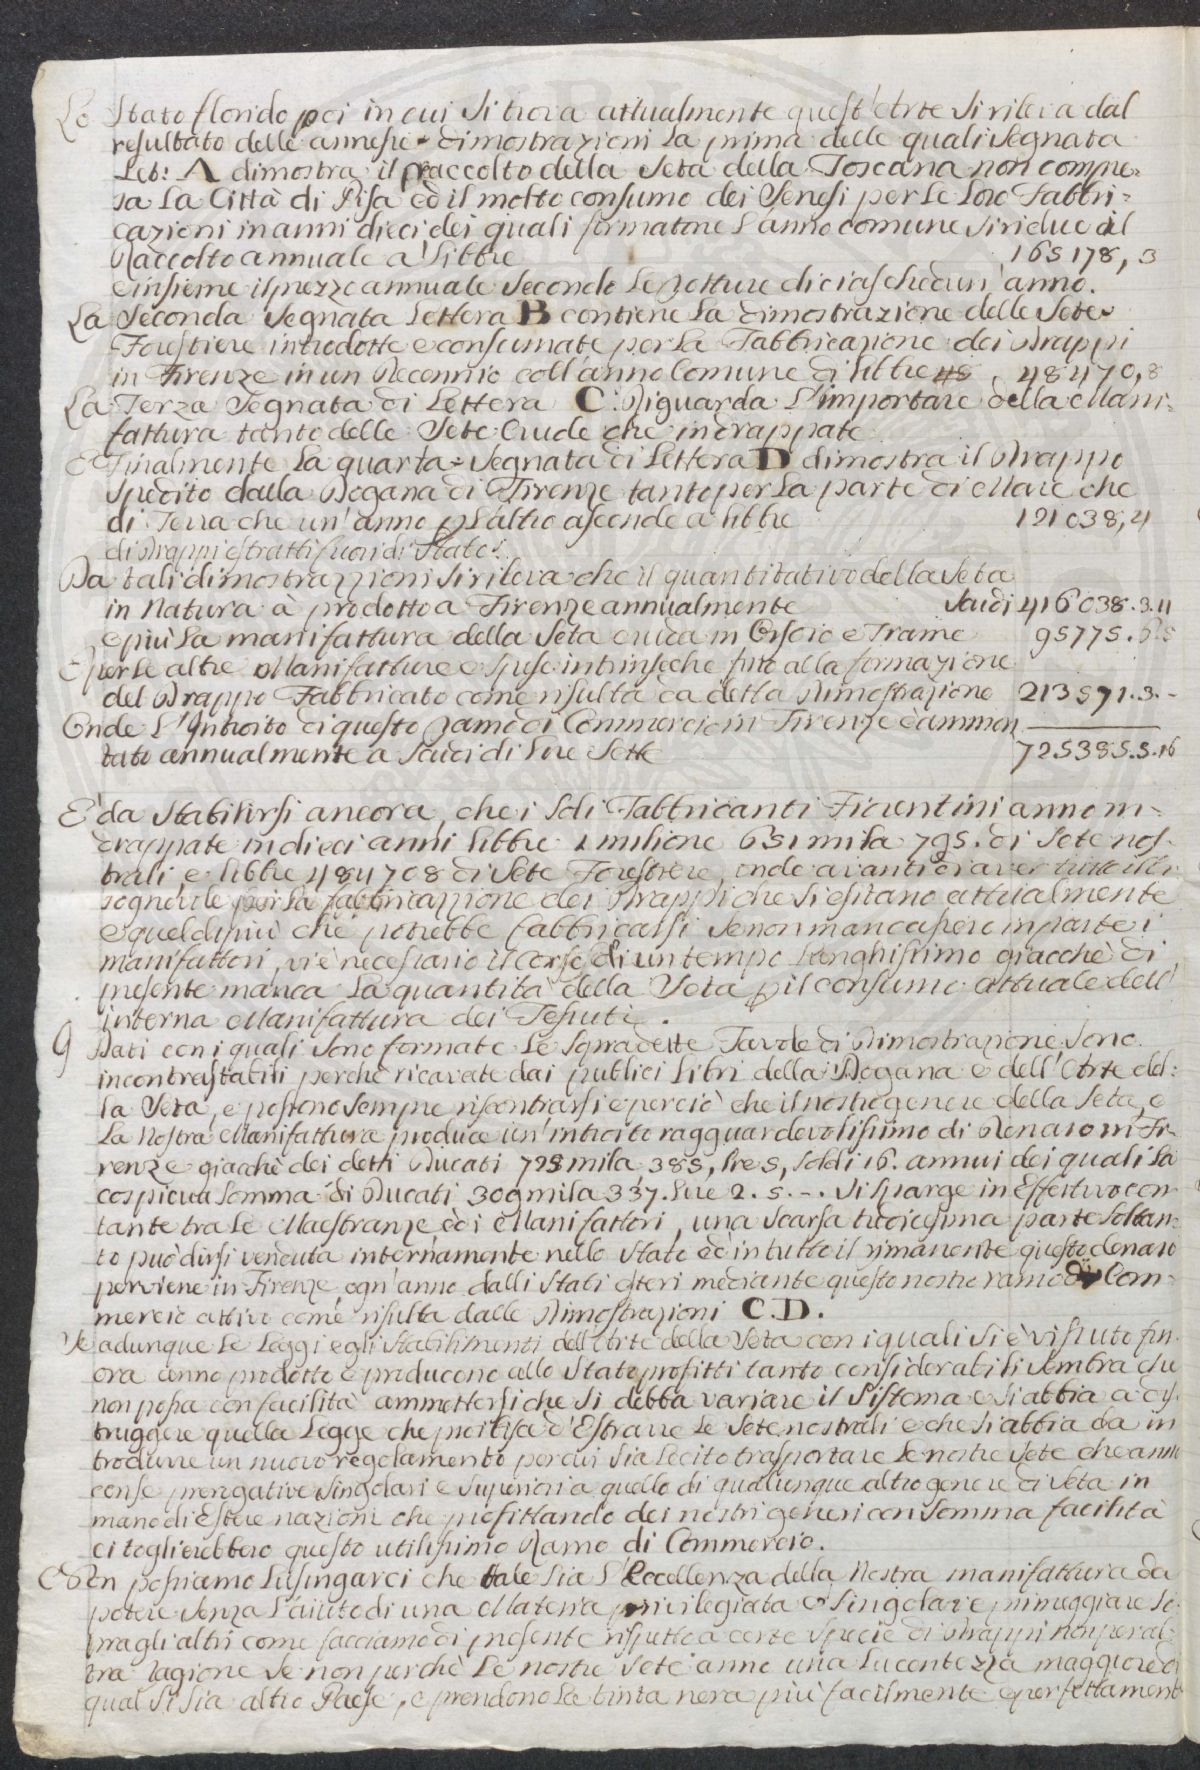 Lo Stato florido poi in cui si trova attualmente quest'Arte si rileva dal
resultato delle annesse dimostrazioni la prima delle quali segnata
Let: A dimostra il raccolto della Seta della Toscana non compre=
sa la Città di Pisa ed il molto consumo dei Senesi per le loro Fabbri=
cazioni in anni dieci dei quali formatone l'anno comune si riduce il
Raccolto annuale a libbre 165178,3
e insieme il prezzo annuale secondo le Votture di ciaschedun' anno.
La Seconda Segnata Lettera B contiene la dimostrazione delle Sete
Forestiere introdotte e consumate per la Fabbricazione dei Drappi
in Firenze in un Decennio coll'anno Comune di libbre 48470,8
La Terza Segnata di Lettera C: Riguarda l'importare della Mani=
fattura tanto delle Sete Crude che indrappate
E Finalmente la quarta Segnata di Lettera D dimostra il Drappo
spedito dalla Dogana di Firenze tanto per la parte di Mare che
di Terra che un'anno p l'altro ascende a libbre 121038,4
di Drappi estratti fuori di Stato.
Da tali dimostrazzioni si rileva che il quantitativo della Seta
in natura à prodotto a Firenze annualmente Scudi 416038.3.11
e più la manifattura della Seta cruda in Orsoio e Trame 95775.6.5
E per le altre Manifatture e spese intrinseche fino alla formazione
del Drappo Fabbricato come risulta da detta Dimostrazione 213571.3.-
Onde L'Introito di questo Ramo di Commercio in Firenze è ammon
tato annualmente a Scudi di lire Sette 725385.5.16
E' da stabilirsi ancora, che i soli Fabbricanti Fiorentini anno in=
drappate in dieci anni libbre 1 milione 651 mila 795. di Sete nos=
trali, e libbre 484708 di Sete Forestiere, onde avanti di aver tutto il bi
sognevole per la fabbricazzione dei Drappi che si esitano attualmente
e quel di più che potrebbe fabbricarsi se non mancassero in parte i
manifattori, vi è necessario il corso di un tempo lunghissimo giacchè di
presente manca la quantità della Seta p il consumo attuale dell'
interna Manifattura dei Tessuti.
I Dati con i quali sono formate le sopradette Tavole di Dimostrazione sono
incontrastabili perchè ricavate dai publici libri della Dogana e dell'Arte del=
la Seta, e possono sempre riscontrarsi e perciò che il nostro genere della Seta, e
la nostra Manifattura produce un'introito ragguardevolissimo di Denaro in Fi=
renze giacchè dei detti Ducati 725 mila 385, lire 5, soldi 16. annui dei quali la
cospicua somma di Ducati 309 mila 337. lire 2. 5.-. si sparge in Effettivo con
tante tra le Maestranze ed i Manifattori, una scarsa tredicesima parte soltan=
to può dirsi venduta internamente nello Stato ed in tutto il rimanente questo denaro
perviene in Firenze ogn'anno dalli Stati esteri mediante questo nostro ramo di Com
mercio attivo come risulta dalle Dimostrazioni C.D.
Se adunque le Leggi e gli stabilimenti dell'Arte della Seta con i quali si è vissuto fin
ora anno prodotto e producono allo Stato profitti tanto considerabili sembra che
non possa con facilità ammettersi che si debba variare il Sistema e si abbia a dis
truggere quella Legge che proibisce d'Estrarre le Sete nostrali e che si abbia da in
trodurre un nuovo regolamento per cui sia lecito trasportare le nostre Sete che anno
con se prerogative singolari e superiori a quello di qualunque altro genere di Seta in
mano di Estere nazioni che profittando dei nostri generi con somma facilità
ci toglierebbero questo utilissimo Ramo di Commercio.
Non possiamo lusingarci che tale sia l'Eccellenza della Nostra manifattura da
potere senza l'aiuto di una Materia privilegiata e singolare primeggiare so=
pra gli altri come facciamo di presente rispetto a certe specie di Drappi non per al=
tra ragione se non perchè le nostre Sete anno una Lucentezza maggiore di
qual si sia altro Paese, e prendono la tinta nera più facilmente e perfettamente